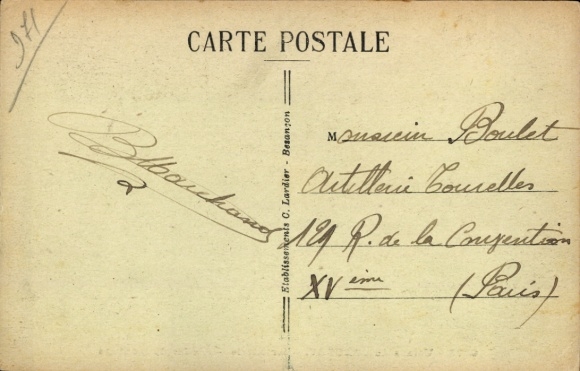 971
CARTE POSTALE
Marchand
Etablissements C. Lardier - Besançon
Monsieur Boulet
Artillerie Tourelles
129 R. de la Convention
XVème (Paris)